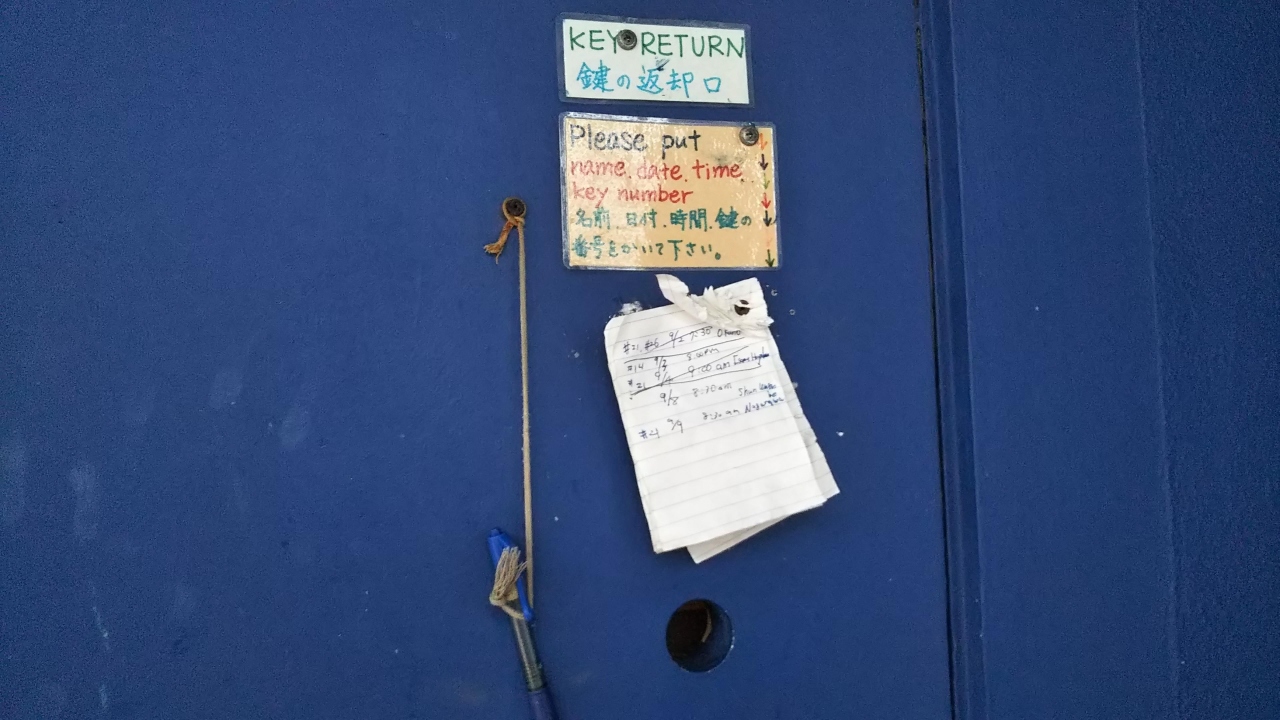 KEY RETURN
鍵の返却口
Please put
name, date, time,
key number
名前、日付、時間、鍵の
番号をかいて下さい。
#21, #26 9/2 7:30
#14 9/3
#21 9:00 am
9/8 8:30 am Shun
#21 9/9